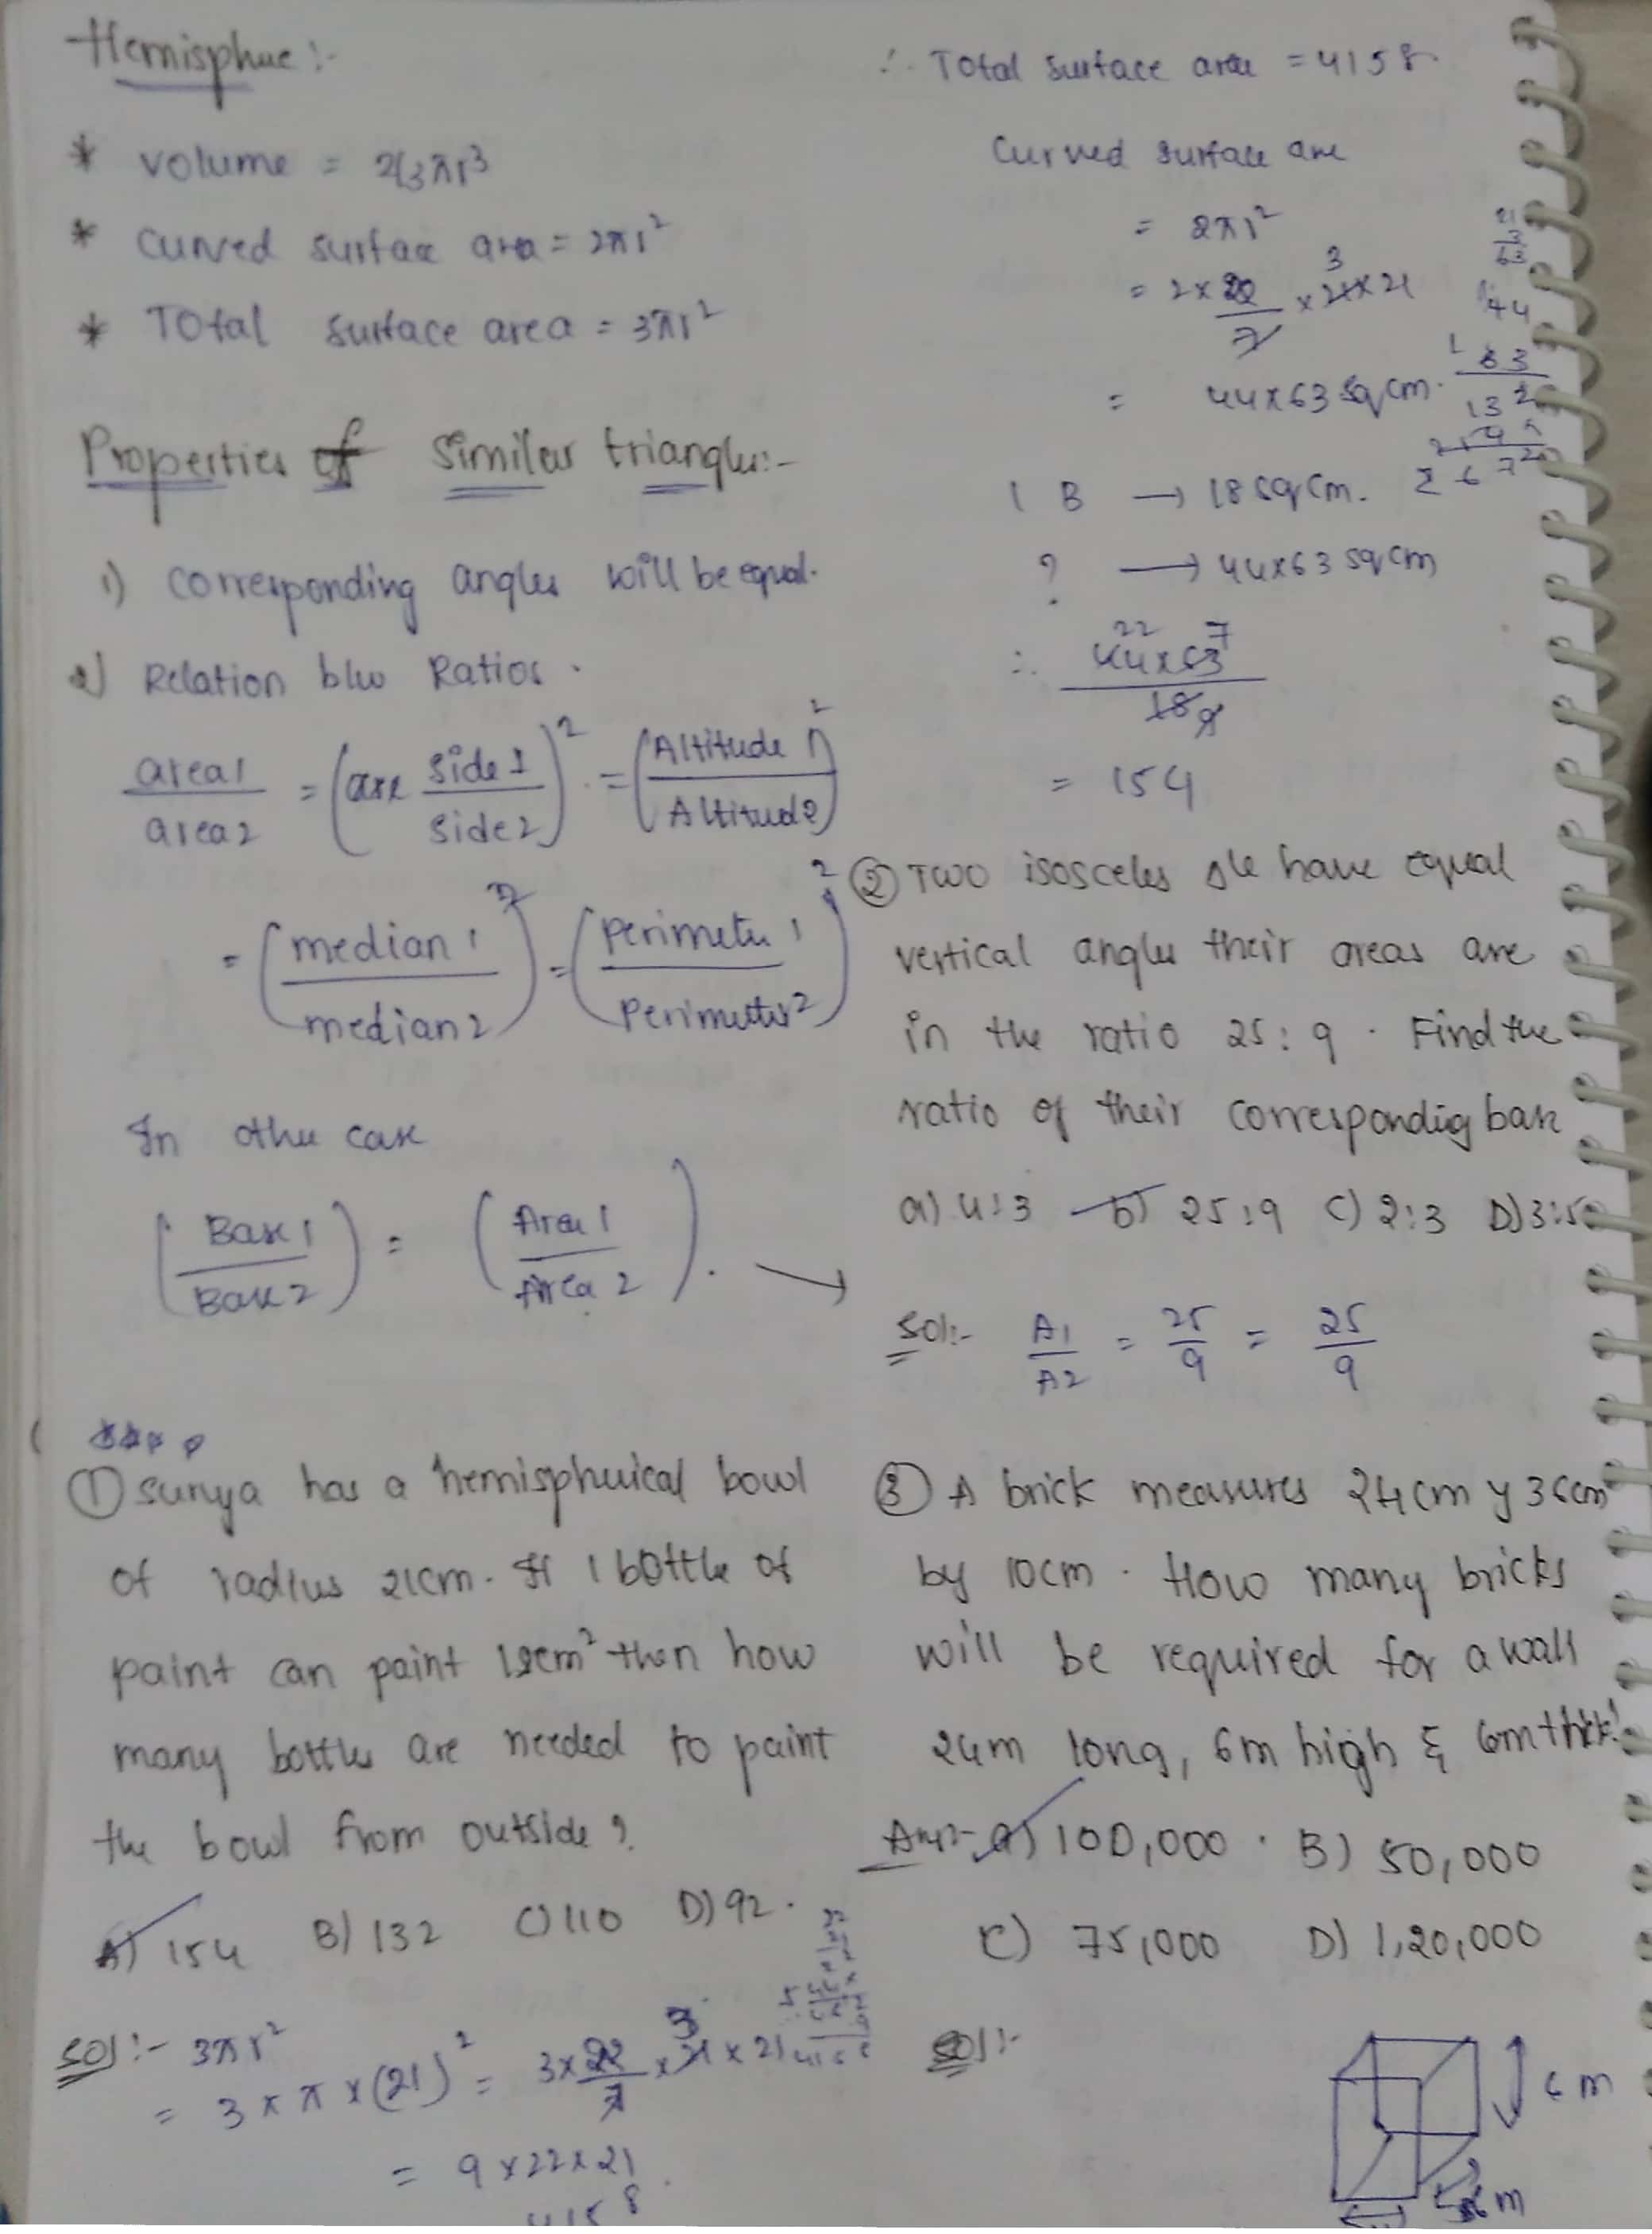 Hemisphere :-
* volume = 2/3πr³
* curved surface area = 2πr²
* Total surface area = 3πr²
Properties of similar triangles:-
1) corresponding angles will be equal.
2) Relation b/w Ratios.
area1/area2 = (side1/side2)² = (Altitude 1/Altitude2)²
= (median 1/median2)² = (perimeter 1/Perimeter2)²
In other case
(Base 1/Base 2) = (Area 1/Area 2). →
① surya has a hemispherical bowl
of radius 21cm. If 1 bottle of
paint can paint 18cm² then how
many bottles are needed to paint
the bowl from outside?
A) 154 B) 132 C) 110 D) 92.
Sol:- 3πr²
= 3 × π × (21)² = 3 × 22/7 × 21 × 21
= 9 × 22 × 21
4158
∴ Total surface area = 4158
Curved surface are
= 2πr²
= 2 × 22/7 × 21 × 21
3
= 44×63 sq cm.
21
3
63
44
63
132
1 B → 18 sq cm.
? → 44×63 sq cm
∴ 44×63/18
22 7
9
= 154
② Two isosceles Δle have equal
vertical angles their areas are
in the ratio 25:9. Find the
ratio of their corresponding base
a) 4:3 b) 25:9 C) 2:3 D) 3:5
Sol:- A1/A2 = 25/9 = 25/9
③ A brick measures 24cm y 36cm
by 10cm. How many bricks
will be required for a wall
24m long, 6m high & 6m thick!
Ans:- a) 100,000. B) 50,000
C) 75,000 D) 1,20,000
Sol:-
6 m
m